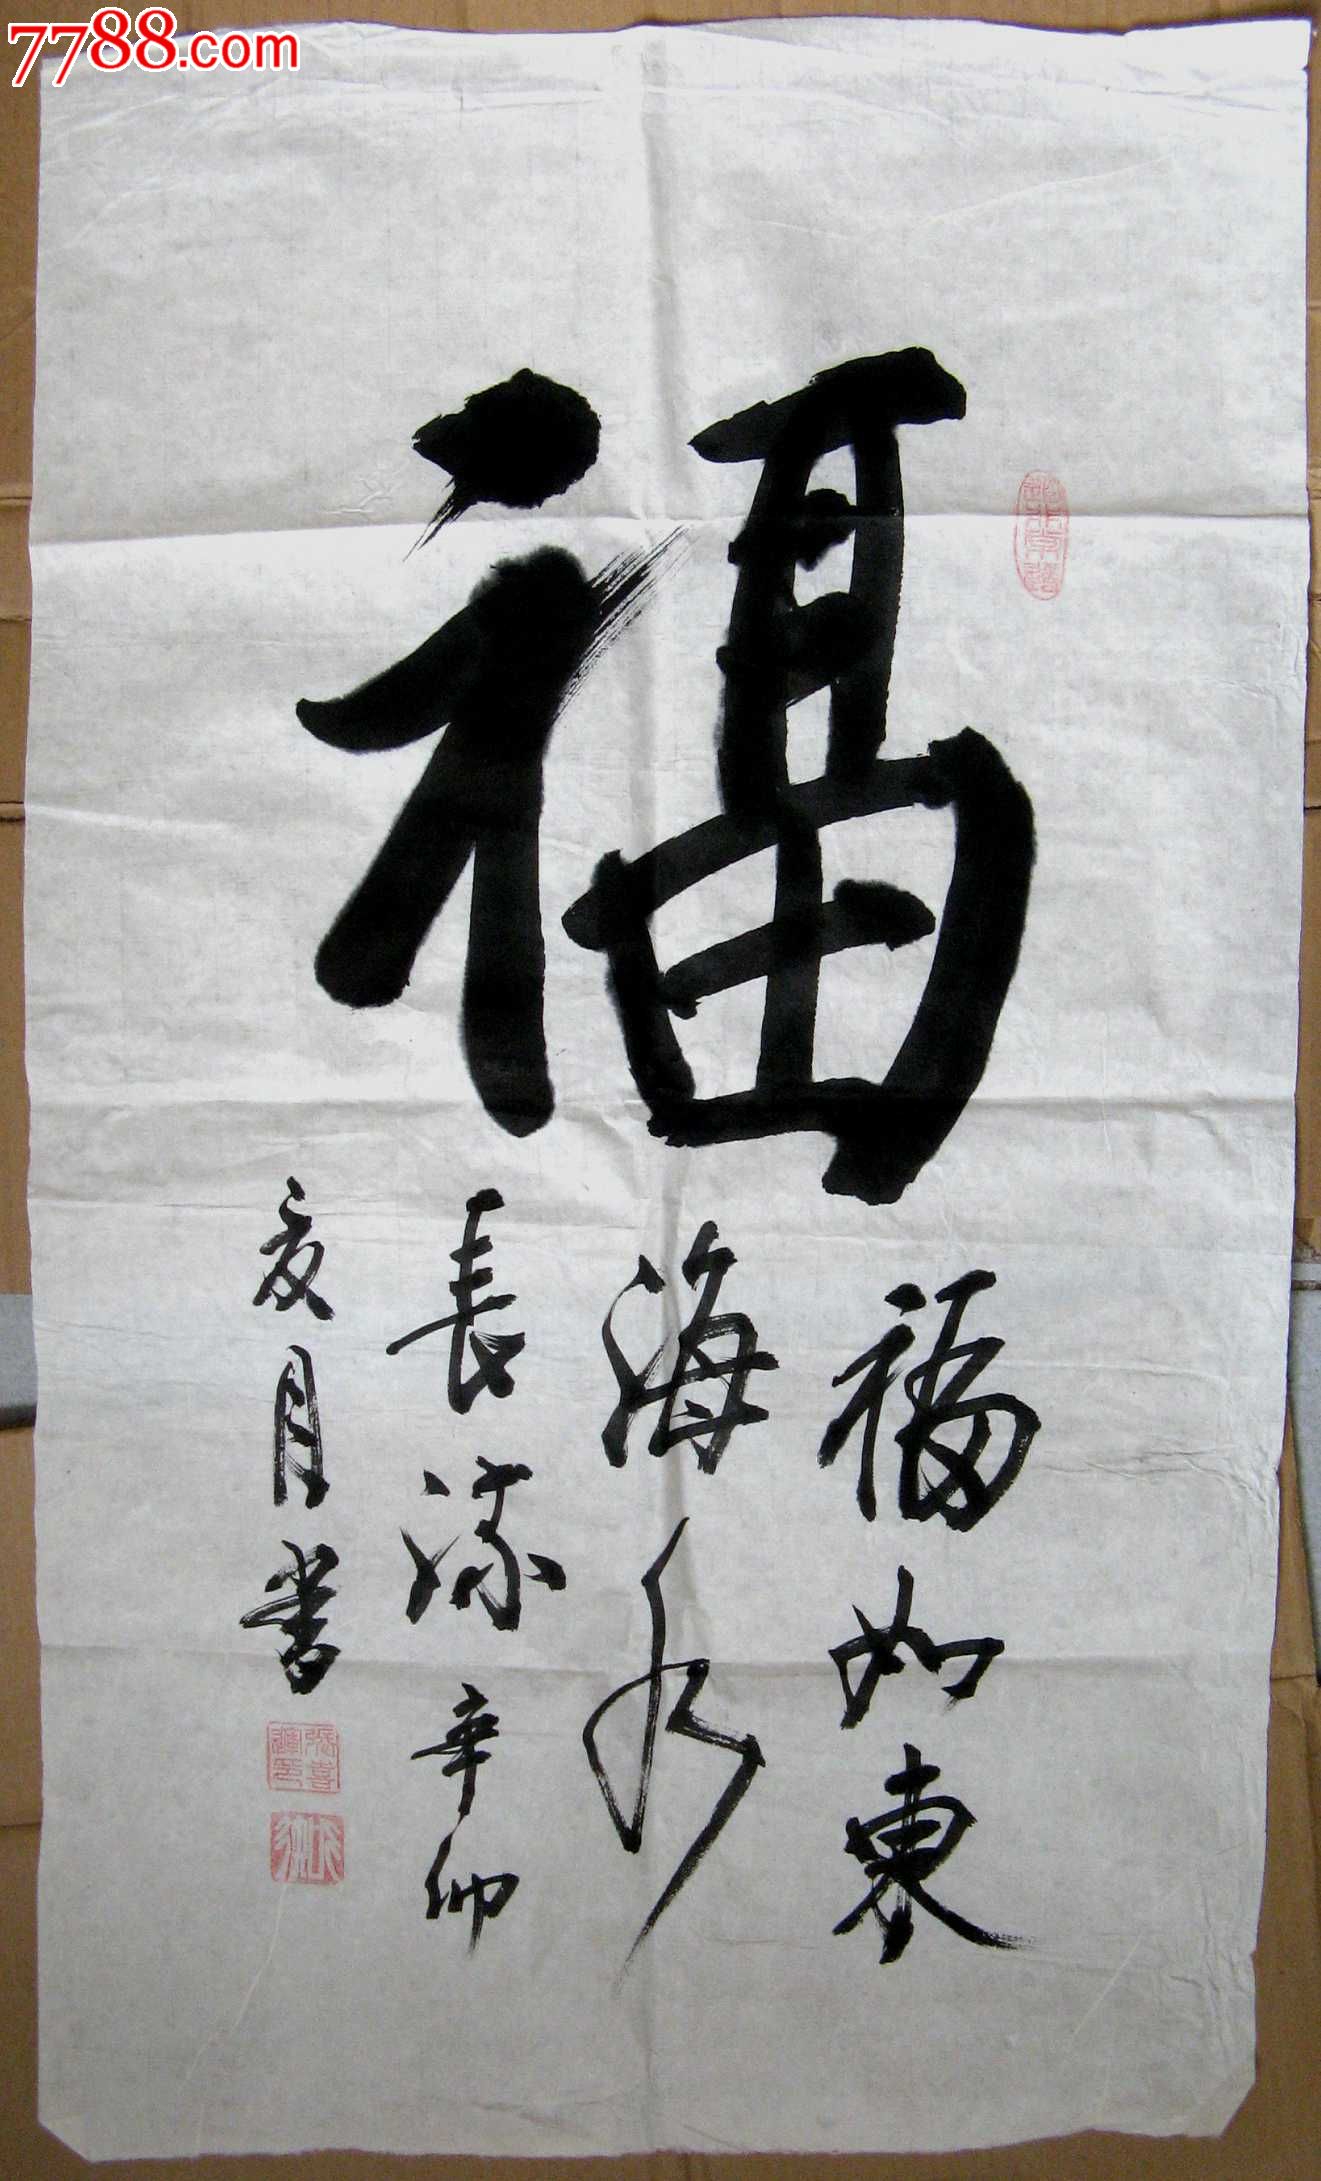 7788.com
福
福如東
海水
長流 辛卯
夏月書